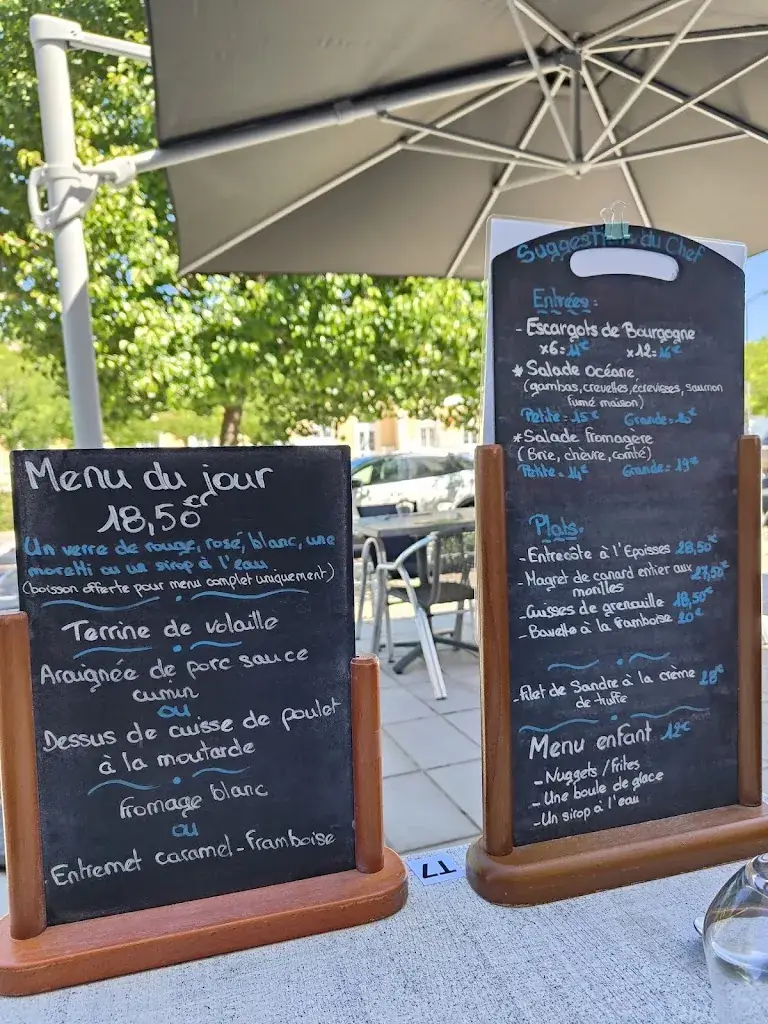 Menu du jour
18,50€
Un verre de rouge, rosé, blanc, une
moretti ou un sirop à l'eau
(boisson offerte pour menu complet uniquement)
Terrine de volaille
Araignée de porc sauce
cumin
ou
Dessus de cuisse de poulet
à la moutarde
fromage blanc
ou
Entremet caramel-framboise
Suggestions du Chef
Entrées :
- Escargots de Bourgogne
x6= €   x12= 16€
* Salade Océane
(gambas, crevettes, écrevisses, saumon
fumé maison)
Petite = 15€   Grande = €
* Salade fromagère
(Brie, chèvre, comté)
Petite = 14€   Grande = 19€
Plats.
- Entrecôte à l'Epoisses 28,50€
- Magret de canard entier aux 27,50€
morilles
- Cuisses de grenouille 18,50€
- Bavette à la framboise 20€
- filet de Sandre à la crème 28€
de truffe
Menu enfant 12€
- Nuggets / frites
- Une boule de glace
- Un sirop à l'eau